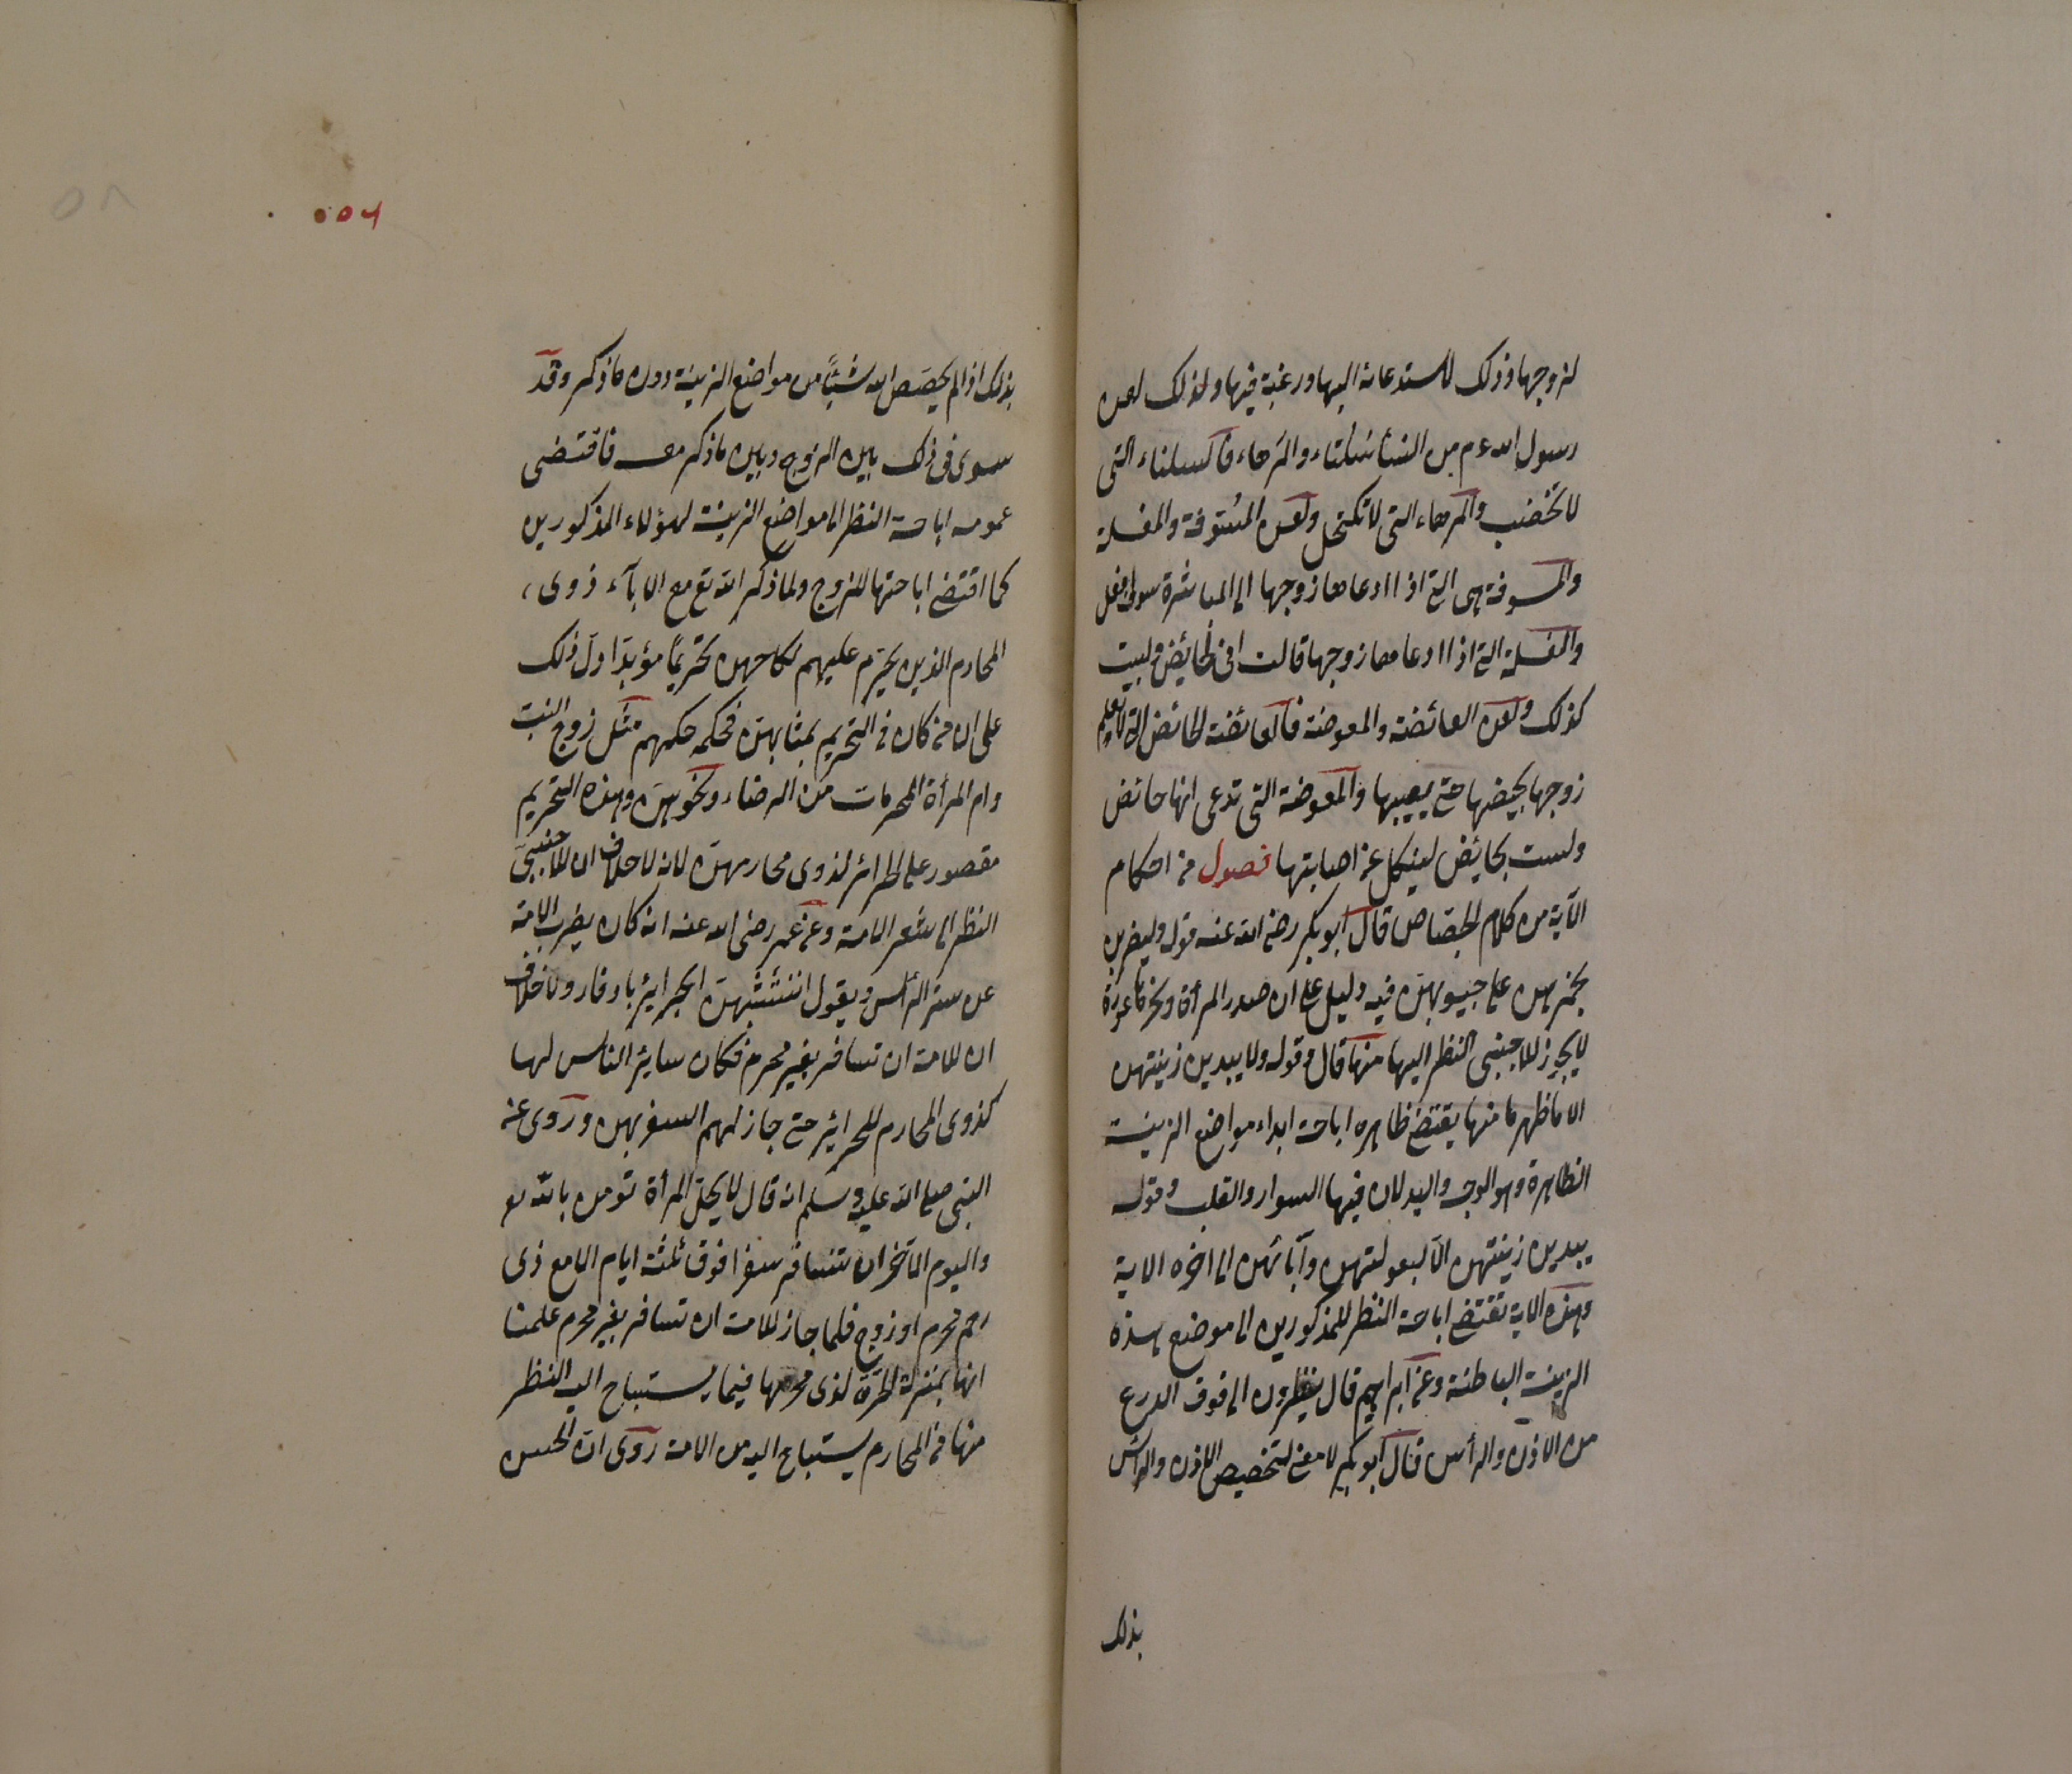 لزوجها وذلك لاستدعائه اليها ورغبة فيها ولذلك لعن
رسول الله عم من النسأ السلتاء والمرهاء فالسلتاء التى
لا تخضب والمرهاء التى لا تكتحل ولعن المسوفة والمفسلة
والمسوفة هى التى اذا ادعاها زوجها الى المباشرة سوف افعل
والمفسلة التى اذا ادعاها زوجها قالت انى حائض وليست
كذلك ولعن الغائضة والمغوضة فالغائضة الحائض التى لا تعلم
زوجها بحيضها حتى يصيبها والمغوضة التى تدعى انها حائض
وليست بحائض لينكل عن اصابتها فصول من احكام
الآية من كلام الجصاص قال ابو بكر رضى الله عنه قوله وليضربن
بخمرهن على جيوبهن فيه دليل على ان صدر المرأة ونحرها عورة
لا يجوز للاجنبى النظر اليها منها قال وقوله ولا يبدين زينتهن
الا ما ظهر منها يقتضى ظاهره اباحة ابداء مواضع الزينة
الظاهرة وهو الوجه واليد لان فيها السوار والقلب وقوله
يبدين زينتهن الا لبعولتهن وآبائهن الى اخره الاية
وهذه الاية تقتضى اباحة النظر للمذكورين الى موضع هذه
الزينة الباطنة وعن ابراهيم قال ينظرون الى فوق الدرع
من الاذن والرأس قال ابو بكر لا معنى لتخصيص الاذن والرأس
بذلك
بذلك اذ لم يخصص الله شيئًا من مواضع الزينة دون ما ذكر وقد
سوى فى ذلك بين الزوج وبين ما ذكر معه فاقتضى
عمومه اباحة النظر الى مواضع الزينة لهؤلاء المذكورين
كما اقتضى اباحتها للزوج ولما ذكر الله تع مع الابآء ذوى
المحارم الذين يحرم عليهم نكاحهن تحريمًا مؤبدًا ول ذلك
على ان من كان فى التحريم بمثابهن فحكمه حكمهم مثل زوج البنت
وام المرأة المحرمات من الرضاء ونحوهن وهذه التحريم
مقصور على الحرائر لذوى محارمهن لانه لا خلاف ان للاجنبى
النظر الى شعر الامة وعن عمر رضى الله عنه انه كان يضرب الامة
عن ستر الرأس ويقول اتتشبهن الحرائر يا دفار ولا خلاف
ان للامة ان تسافر بغير محرم فكان سائر الناس لها
كذوى المحارم للحرائر حتى جاز لهم السفر بهن وروى عن
النبى صلى الله عليه وسلم انه قال لا يحل المرأة تومن بالله
واليوم الآخر ان تسافر سفرا فوق ثلثة ايام الا مع ذى
رحم محرم او زوج فلما جاز للامة ان تسافر بغير محرم علمنا
انها بمنزلة الحرة لذى محرمها فيما يستباح اليه النظر
منها فى المحارم يستباح اليه من الامة روى ان الحسن
٥٨